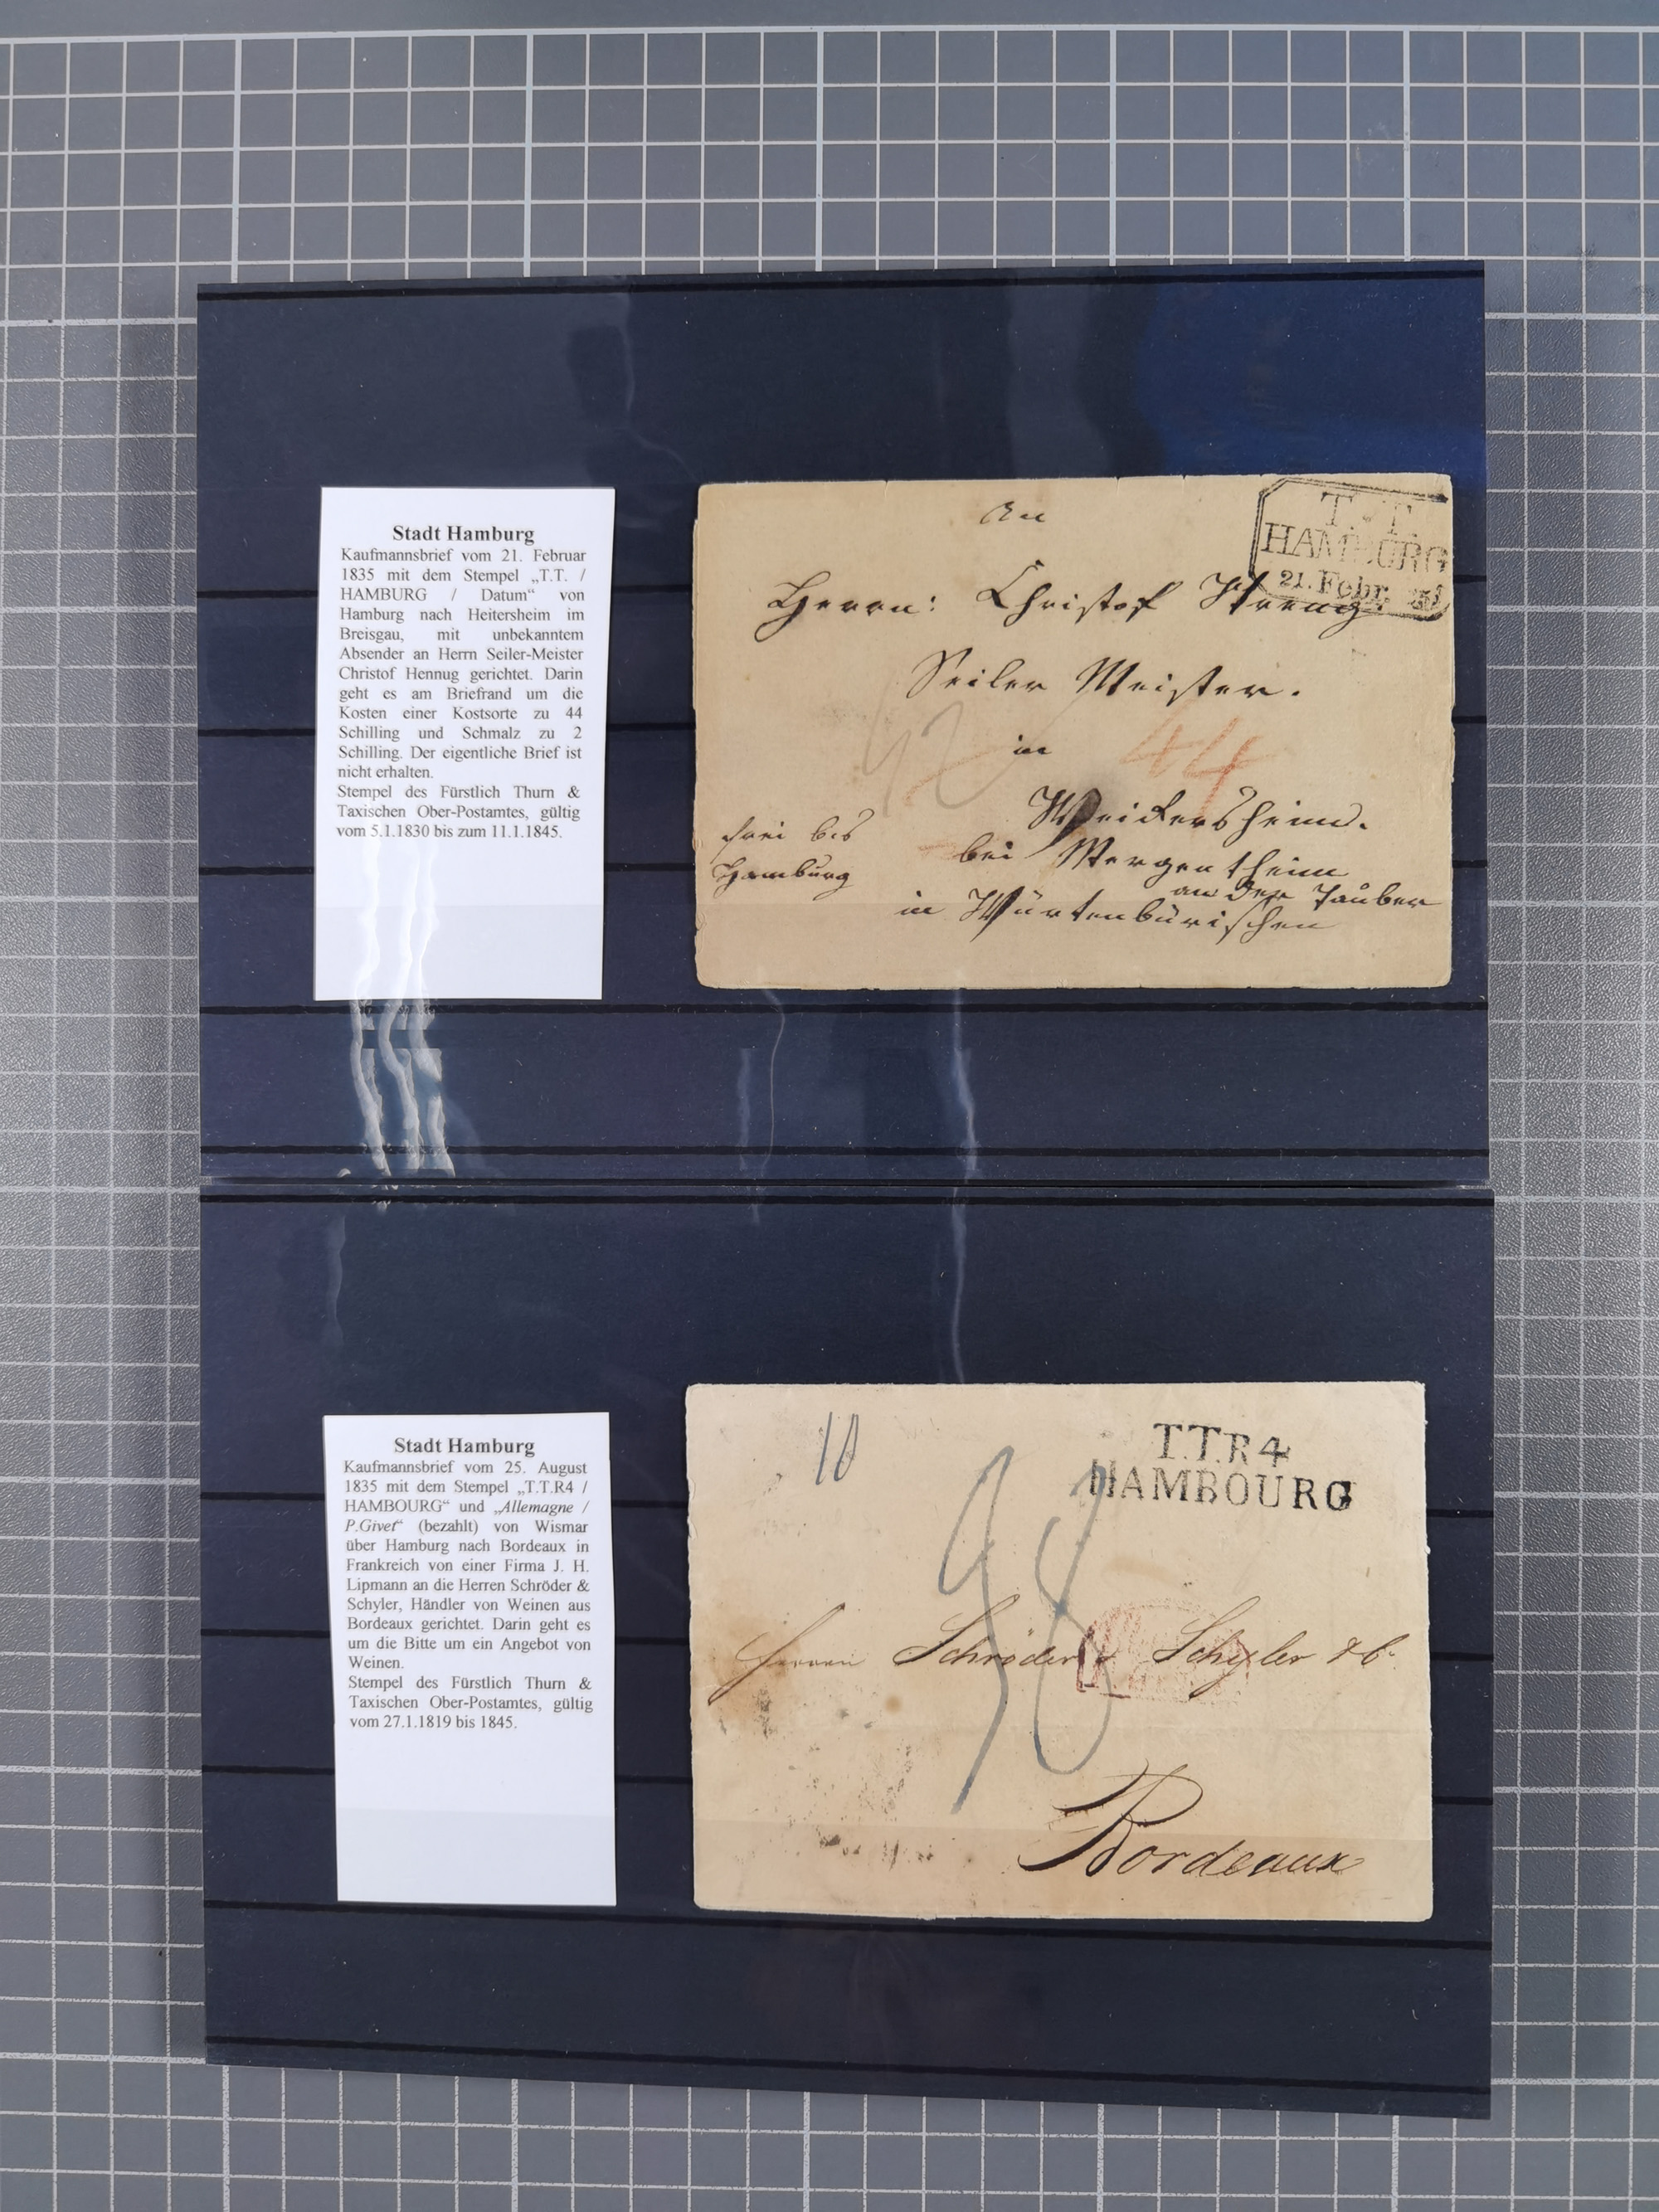 Stadt Hamburg
Kaufmannsbrief vom 21. Februar
1835 mit dem Stempel „T.T. /
HAMBURG / Datum“ von
Hamburg nach Heitersheim im
Breisgau, mit unbekanntem
Absender an Herrn Seiler-Meister
Christof Hennug gerichtet. Darin
geht es am Briefrand um die
Kosten einer Kostsorte zu 44
Schilling und Schmalz zu 2
Schilling. Der eigentliche Brief ist
nicht erhalten.
Stempel des Fürstlich Thurn &
Taxischen Ober-Postamtes, gültig
vom 5.1.1830 bis zum 11.1.1845.
T. T.
HAMBURG
21. Febr.
An
Herrn: Christof
Seiler Meister.
in
44
Weikersheim.
bei Mergentheim
an der Tauber
in Würtenbürischen
frei bis
Hamburg
Stadt Hamburg
Kaufmannsbrief vom 25. August
1835 mit dem Stempel „T.T.R4 /
HAMBOURG“ und „Allemagne /
P.Givet“ (bezahlt) von Wismar
über Hamburg nach Bordeaux in
Frankreich von einer Firma J. H.
Lipmann an die Herren Schröder &
Schyler, Händler von Weinen aus
Bordeaux gerichtet. Darin geht es
um die Bitte um ein Angebot von
Weinen.
Stempel des Fürstlich Thurn &
Taxischen Ober-Postamtes, gültig
vom 27.1.1819 bis 1845.
10
T.T.R 4
HAMBOURG
38
Herren Schröder & Schyler & C.
Bordeaux